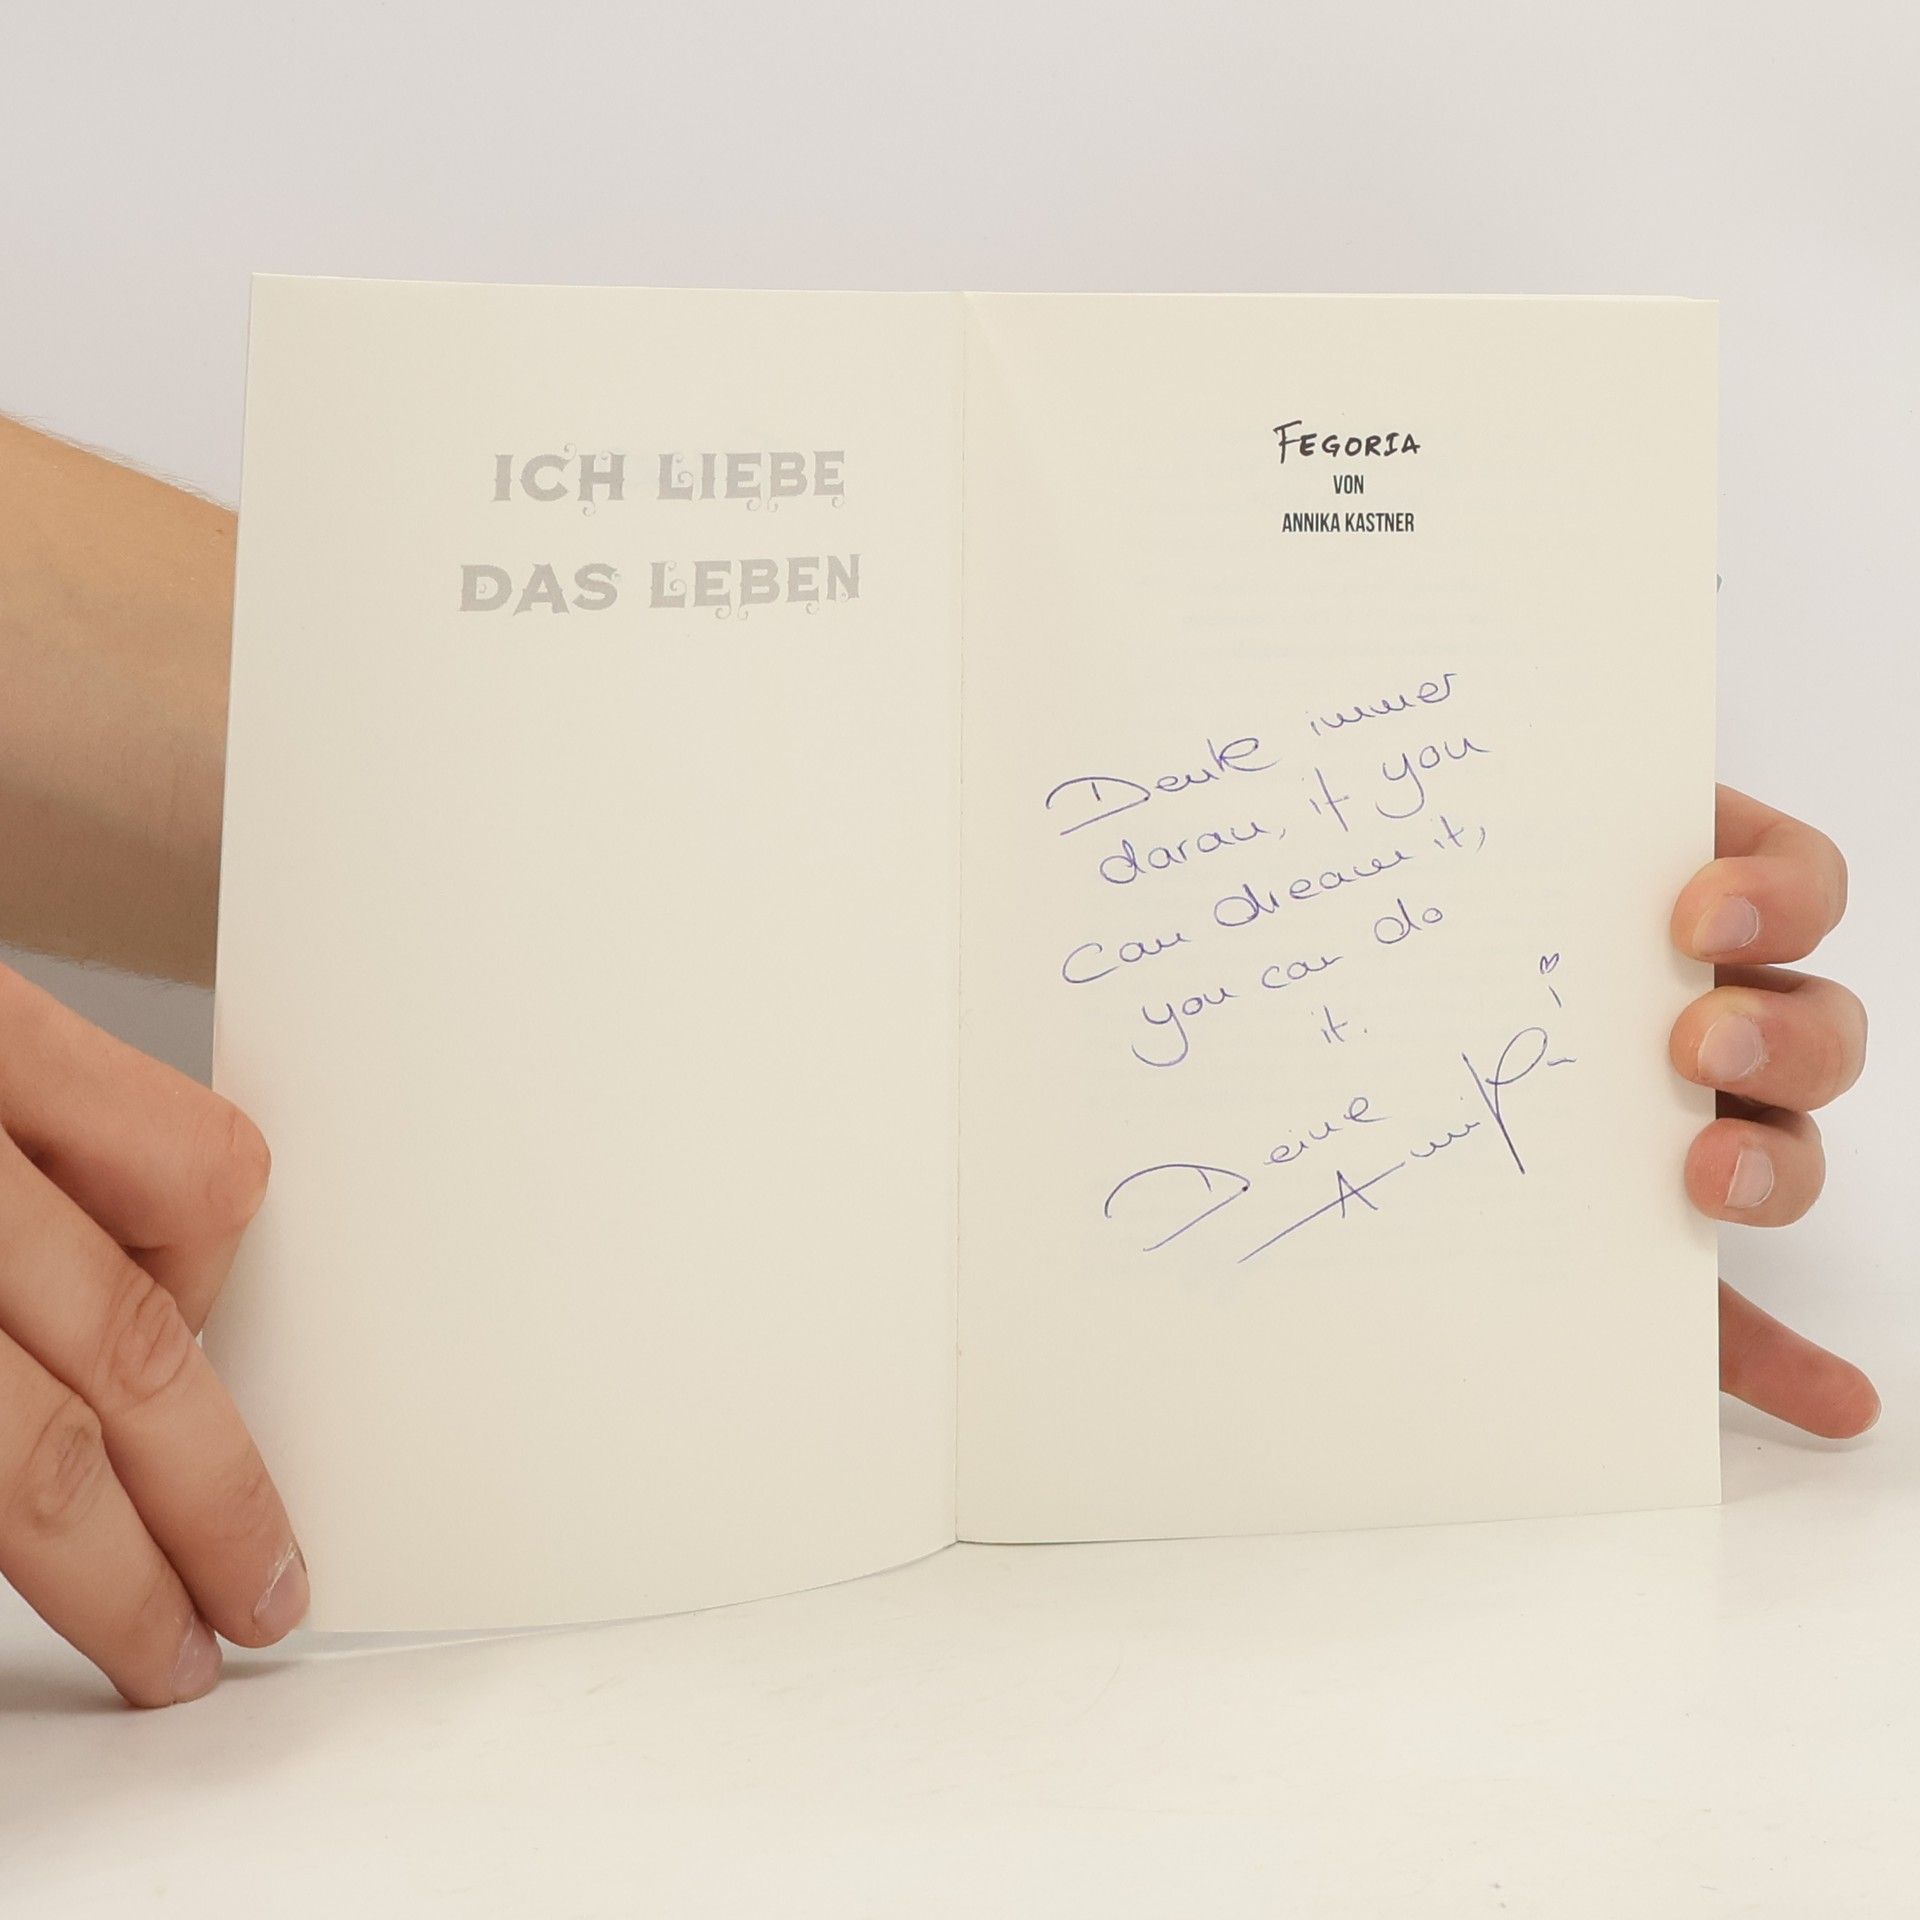 ICH LIEBE
DAS LEBEN
FEGORIA
VON
ANNIKA KASTNER
Denke immer
daran, if you
can dream it,
you can do
it.
Deine
Annika